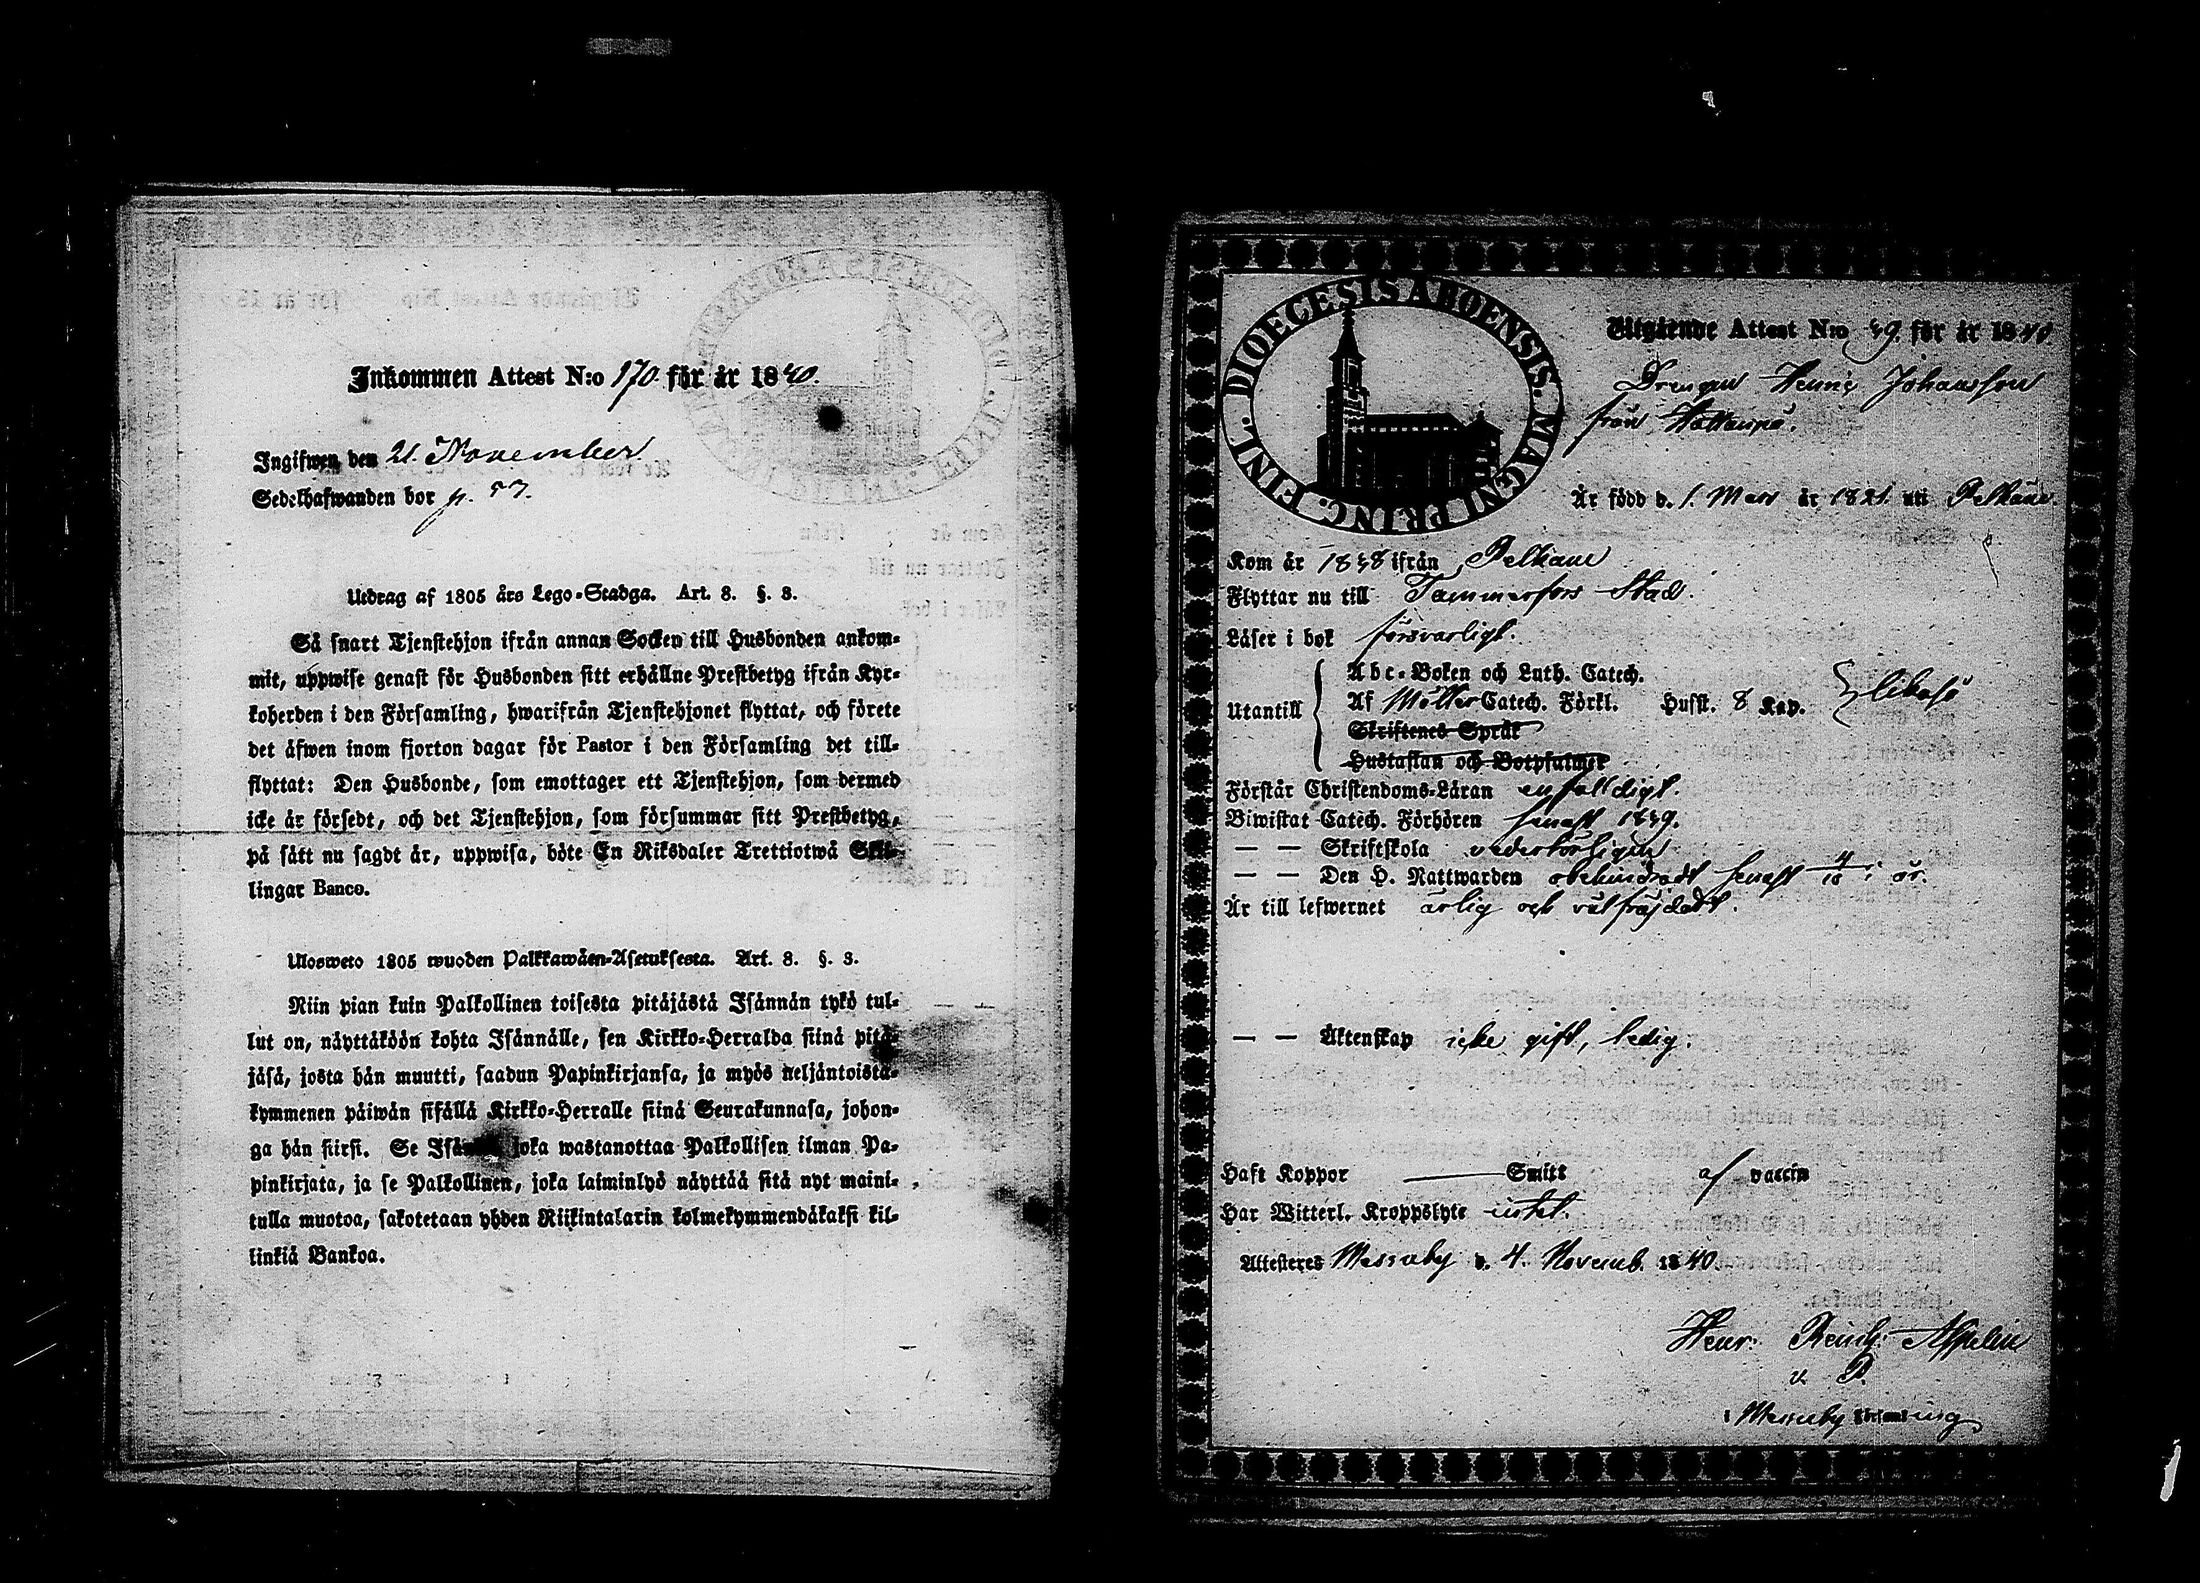 Inkommen Attest N:o 170. för år 1840.
Ingifwen den 21. November
Sedelhafwanden bor p. 57.
Utdrag af 1805 års Lego-Stadga. Art. 8. §. 3.
Så snart Tjenstehjon ifrån annan Socken till Husbonden ankom-
mit, uppwise genast för Husbonden sitt erhållne Prestbetyg ifrån Kyr-
koherden i den Församling, hwarifrån Tjenstehjonet flyttat, och förete
det äfwen inom fjorton dagar för Pastor i den Församling det till-
flyttat: Den Husbonde, som emottager ett Tjenstehjon, som dermed
icke är försedt, och det Tjenstehjon, som försummar sitt Prestbetyg,
på sätt nu sagdt är, uppwisa, böte En Riksdaler Trettiotwå Skil-
lingar Banco.
Ulosweto 1805 wuoden Palkkawäen-Asetuksesta. Art. 8. §. 3.
Niin pian kuin Palkollinen toisesta pitäjästä Isännän tykö tul-
lut on, näyttäköön kohta Isännälle, sen Kirkko-Herralda siinä pitä-
jäsä, josta hän muutti, saadun Papinkirjansa, ja myös neljäntoista-
kymmenen päiwän sisällä Kirkko-Herralle siinä Seurakunnasa, johon-
ga hän siirsi. Se Isä joka wastanottaa Palkollisen ilman Pa-
pinkirjata, ja se Palkollinen, joka laiminlyö näyttää sitä nyt maini-
tulla muotoa, sakotetaan yhden Riikintalarin kolmekymmendäkaksi kil-
linkiä Bankoa.
DIOECESIS ABOENSIS. MAGNI PRINC. FINL.
Utgående Attest N:o 39. för år 1840
Drengen Henric Johansson
från
Är född d. 1. Mars år 1821. uti Pelkäne.
Kom år 1838 ifrån Pelkäne
Flyttar nu till Tammerfors Stad.
Läser i bok försvarligt.
Utantill
Abc-Boken och Luth. Catech.
Af Möller Catech. Förkl. Husst. 8 Kap. likaså
Skriftenes Språk
Hustaflan och Botpsalmer
Förstår Christendoms-Läran enfaldigt.
Biwistat Catech. Förhören senast 1839.
— — Skriftskola vederbörligen
— — Den H. Nattwarden obehindradt senast 4/10 i år.
Är till lefwernet ärlig och välfräjdad.
— — Äktenskap icke gift, ledig.
Haft Koppor — Smitt af vaccin
Har Witterl. Kroppslyte intet.
Attesteres Messuby d. 4. Novemb. 1840
Henr: Reinh: Aspelin
v. P.
i Messuby Församling